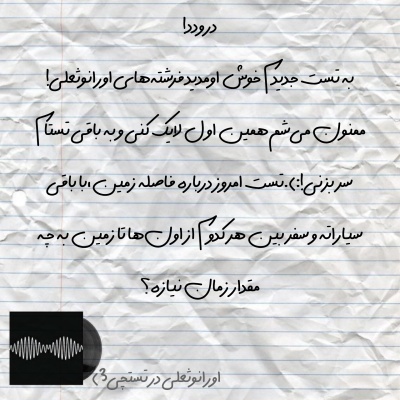 دروددا
به تست جدیدم خوش اومدید فرشته‌های اورانوثعلی!
ممنون می‌شم همین اول لایک کنی و به باقی تستام
سر بزنی!:).تست امروز درباره فاصله زمین ،با باقی
سیاراته و سفر بین هر کدوم از اون‌ها تا زمین به چه
مقدار زمان نیازه؟
اورانوثعلی در تستچی3>